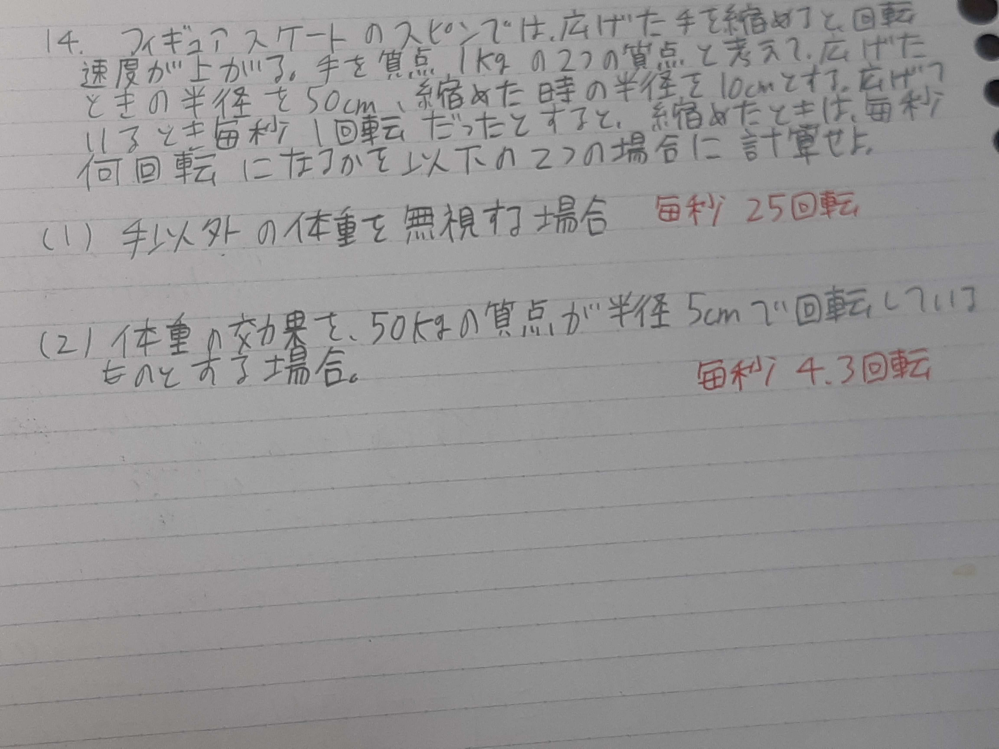 14. フィギュアスケートのスピンでは、広げた手を縮めると、回転
速度が上がる。手を質点 1kgの2つの質点と考えて、広げた
ときの半径を50cm、縮めた時の半径を10cmとする。広げて
いるとき毎秒1回転だったとすると、縮めたときは、毎秒
何回転になるかを以下の2つの場合に計算せよ。
(1) 手以外の体重を無視する場合 毎秒 25回転
(2) 体重の効果を、50kgの質点が半径5cmで回転している
ものとする場合。
毎秒 4.3回転